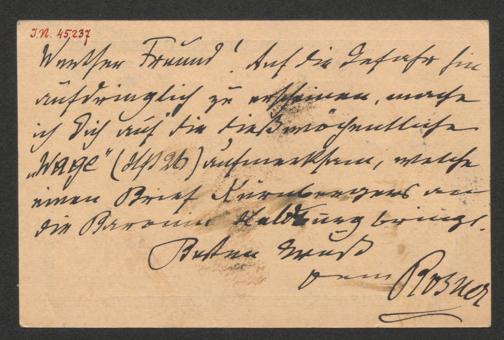 I.N. 45237
Werther Freund! Auf die Gefahr hin
aufdringlich zu erscheinen, mache
ich Dich auf die dießwöchentliche
„Wage" (N° 26) aufmerksam, welche
einen Brief Kürnbergers an
die Baronin Heldburg bringt.
Besten Gruß
Rosner